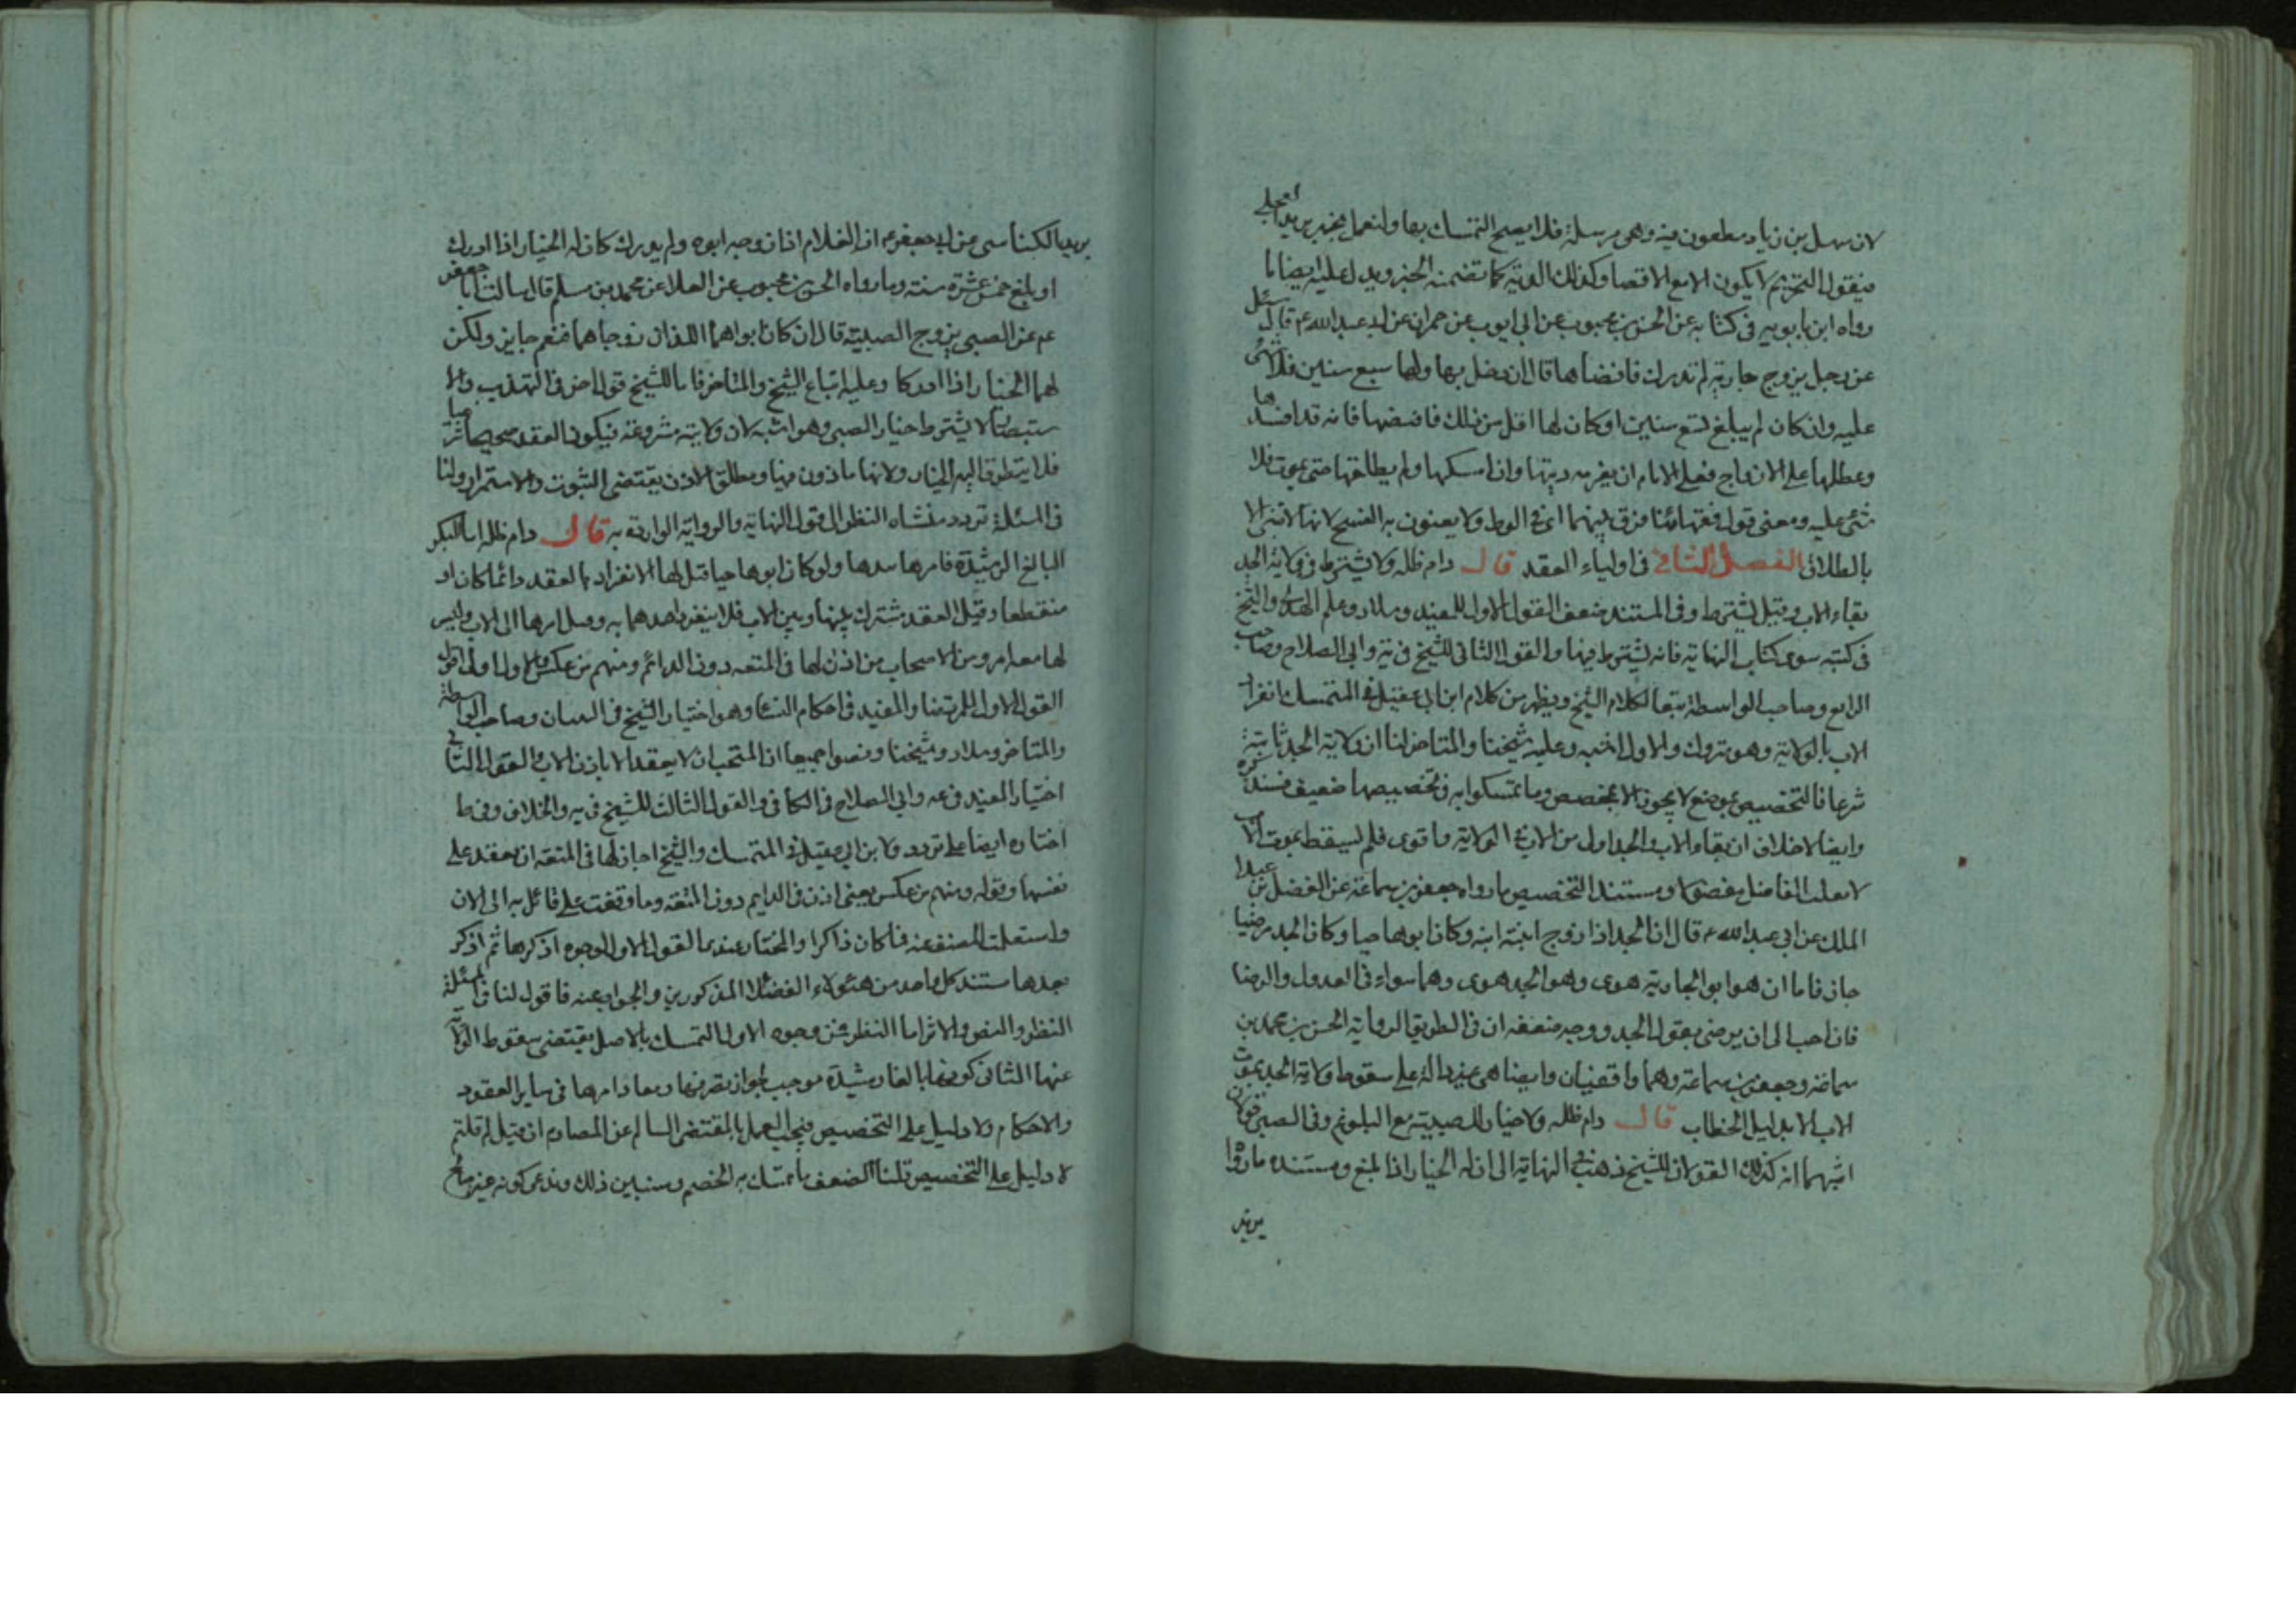 لان سهل بن زياد مطعون فيه وهي مرسلة فلا يصح التمسك بها ولنعمل بخبر بريد العجلي
فيقول التحريم لا يكون الا مع الافضا وكذلك الدية كما تضمنه الخبر ويدل عليه ايضا ما
رواه ابن بابويه فى كتابه عن الحسن بن محبوب عن ابى ايوب عن حمران عن ابى عبد الله ع قال سئل
عن رجل تزوج جارية لم تدرك فافضاها قال ان دخل بها ولها تسع سنين فلا شئ
عليه وان كان لم يبلغ تسع سنين او كان لها اقل من ذلك فافضها فانه قد افسدها
وعطلها على الازواج فعلى الامام ان يغرمه ديتها وان امسكها ولم يطلقها حتى يموت فلا
شئ عليه ومعنى قول فقهائنا فرق بينهما اى فى الوطى ولا يعنون به الفسخ لانها لا تبين الا
بالطلاق الفصل الثانى فى اولياء العقد قال دام ظله ولا يشترط فى ولاية الجد
بقاء الاب وقيل يشترط وفى المستند ضعف القول الاول للمفيد وسلار وعلم الهدى والشيخ
فى كتبه سوى كتاب النهاية فانه يشترط فيها والقول الثانى للشيخ فى يه وابى الصلاح وصاحب
الرابع وصاحب الواسطة تبعا لكلام الشيخ ويظهر من كلام ابن ابى عقيل فى المتمسك انفراد
الاب بالولاية وهو متروك والاول اشبه وعليه شيخنا والمتاخر لنا ان ولاية الجد ثابتة
شرعا فالتخصيص بموضع لا يجوز الا بمخصص وما تمسكوا به فى تخصيصها ضعيف فسنذكره
وايضا لا خلاف ان بقاء الاب والجد اول من الاب فى الولاية واقوى فلم يسقط بموت الاب
لا يعلت الفاضل بمفضول ومستند التخصيص ما رواه جعفر بن سماعة عن الفضل بن عبد
الملك عن ابى عبد الله ع قال ان الجد اذا زوج ابنة ابنه وكان ابوها حيا وكان الجد مرضيا
جاز فاما ان هوا ابو الجارية هوى وهو الجد هوى وهما سواء فى العدل والرضا
فان احب الى ان يرضى بقول الجد ووجه ضعفه ان فى الطريق الرواية الحسن بن محمد بن
سماعة وجعفر بن سماعة وهما واقفيان وايضا هى غير دالة على سقوط ولاية الجد بموت
الاب الا بدليل الخطاب قال دام ظله ولا خيار للصبية مع البلوغ وفى الصبى قولان
اشبههما انه كذلك القولان للشيخ ذهب فى النهاية الى ان له الخيار اذا بلغ ومستنده ما رواه
بريد
بريد الكناسى عن ابى جعفر ع ان الغلام اذا زوجه ابوه ولم يدرك كان له الخيار اذا ادرك
او بلغ خمس عشرة سنة وما رواه الحسن بن محبوب عن العلا عن محمد بن مسلم قال سالت ابا جعفر
ع عن الصبى يزوج الصبية قال ان كان ابواهما اللذان زوجاهما فنعم جايز ولكن
لهما الخيار اذا ادركا وعليه اتباع الشيخ والمتاخر فاما للشيخ قول اخر فى التهذيب والا
ستبصار لا يشترط خيار الصبى وهو اشبه لان ولايته مشروعة فيكون العقد صحيحا شرعيا
فلا يتطرق اليه الخيار ولانها ماذون فيها ومطلق الاذن يقتضى الثبوت والاستمرار ولنا
فى المسئلة تردد منشاه النظر الى قول النهاية والرواية الواردة به قال دام ظله اما البكر
البالغ الرشيدة فامرها بيدها ولو كان ابوها حيا قيل لها الانفراد بالعقد دائما كان او
منقطعا وقيل العقد مشترك بينها وبين الاب فلا ينفرد احدهما به وقيل امرها الى الاب وليس
لها معه امر ومن الاصحاب من اذن لها فى المتعة دون الدائم ومنهم من عكس والاول اولى اقول
القول الاول للمرتضى والمفيد فى احكام النساء وهو اختيار الشيخ فى التبيان وصاحب الواسطة
والمتاخر وسلار وشيخنا ونصوا جميعا ان المستحب ان لا يعقد الا باذن الاب والقول الثانى
اختيار المفيد فى عه وابى الصلاح فى الكافى والقول الثالث للشيخ فى يه والخلاف وفى ط
اختاره ايضا على تردد ولابن ابى عقيل فى المتمسك والشيخ اجاز لها فى المتعة ان تعقد على
نفسها وقوله ومنهم من عكس يعنى اذن فى الدايم دون المتعة وما وقفت على قائل به الى الان
واستعلمت المصنف عنه فما كان ذاكرا والمختار عندنا القول الاول لوجوه اذكرها ثم اذكر
بعدها مستند كل واحد من هؤلاء الفضلاء المذكورين والجواب عنه فاقول لنا فى المسئلة
النظر والنص والاثر اما النظر فمن وجوه الاول التمسك بالاصل يقتضى سقوط الولاية
عنها الثانى كونها بالغا رشيدة موجب لجواز تصرفها ومعاد امرها فى ساير العقود
والاحكام ولا دليل على التخصيص فيجب العمل بالمقتضى السالم عن المصادم ان قيل لم قلتم
لا دليل على التخصيص قلنا لضعف ما تمسك به الخصم وسنبين ذلك وندعى كونه غير صالح